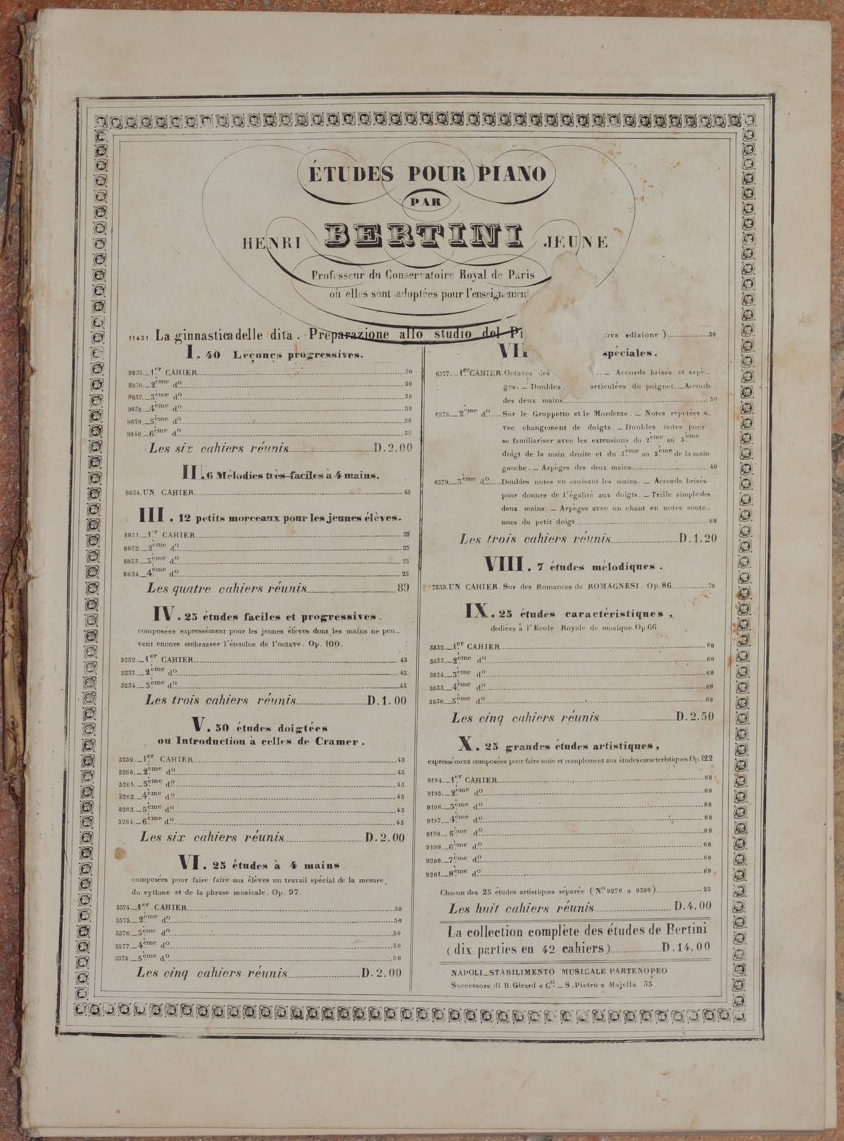 ÉTUDES POUR PIANO
PAR
HENRI BERTINI JEUNE
Professeur du Conservatoire Royal de Paris
où elles sont adoptées pour l'enseignement
11451 La ginnastica delle dita. Preparazione allo studio del edizione) 50
I. 40 Leçons progressives.
9835_1er CAHIER 50
9836_2ème do 50
9837_3ème do 50
9838_4ème do 50
9839_5ème do 50
9840_6ème do 50
Les six cahiers réunis D.2.00
II. 6 Mélodies très-faciles à 4 mains.
8034. UN CAHIER 45
III. 12 petits morceaux pour les jeunes élèves.
8051_1er CAHIER 25
8052_2ème do 25
8053_3ème do 25
8054_4ème do 25
Les quatre cahiers réunis 80
IV. 25 études faciles et progressives.
composées expressément pour les jeunes élèves dont les mains ne peu-
vent encore embrasser l'étendue de l'octave. Op. 100.
5252_1er CAHIER 45
5253_2ème do 45
5254_3ème do 45
Les trois cahiers réunis D.1.00
V. 50 études doigtées
ou Introduction à celles de Cramer.
5259_1er CAHIER 45
5260_2ème do 45
5261_3ème do 45
5262_4ème do 45
5263_5ème do 45
5264_6ème do 45
Les six cahiers réunis D.2.00
VI. 25 études à 4 mains
composées pour faire faire aux élèves un travail spécial de la mesure,
du rythme et de la phrase musicale. Op. 97.
5574_1er CAHIER 50
5575_2ème do 50
5576_3ème do 50
5577_4ème do 50
5578_5ème do 50
Les cinq cahiers réunis D.2.00
spéciales.
6577_1er CAHIER. Octaves des _ Accords brisés et arpè-
ges._ Doubles articulées du poignet._ Accords
des deux mains 50
6578_2ème do Sur le Gruppetto et le Mordente._ Notes répétées a-
vec changement de doigts._ Doubles notes pour
se familiariser avec les extensions du 2ème au 5ème
doigt de la main droite et du 5ème au 5ème de la main
gauche._ Arpèges des deux mains 40
6579_3ème do Doubles notes en croisant les mains._ Accords brisés
pour donner de l'égalité aux doigts._ Trille simple des
deux mains._ Arpèges avec un chant en notes soute-
nues du petit doigt 60
Les trois cahiers réunis D.1.20
VIII. 7 études mélodiques.
7535. UN CAHIER. Sur des Romances de ROMAGNESI. Op.86 70
IX. 25 études caractéristiques,
dediées à l'Ecole Royale de musique. Op.66
5852_1er CAHIER 60
5853_2ème do 60
5854_3ème do 60
5855_4ème do 60
5856_5ème do 60
Les cinq cahiers réunis D.2.50
X. 25 grandes études artistiques,
expressément composées pour faire suite et complement aux études caractéristiques Op.122
9194_1er CAHIER 60
9195_2ème do 60
9196_3ème do 60
9197_4ème do 60
9198_5ème do 60
9199_6ème do 60
9200_7ème do 60
9201_8ème do 60
Chacun des 25 études artistiques séparée (No 9276 a 9300) 25
Les huit cahiers réunis D.4.00
La collection complète des études de Bertini
(dix parties en 42 cahiers) D.14.00
NAPOLI_STABILIMENTO MUSICALE PARTENOPEO
Successore di B. Girard e Co._ S. Pietro a Majella 33